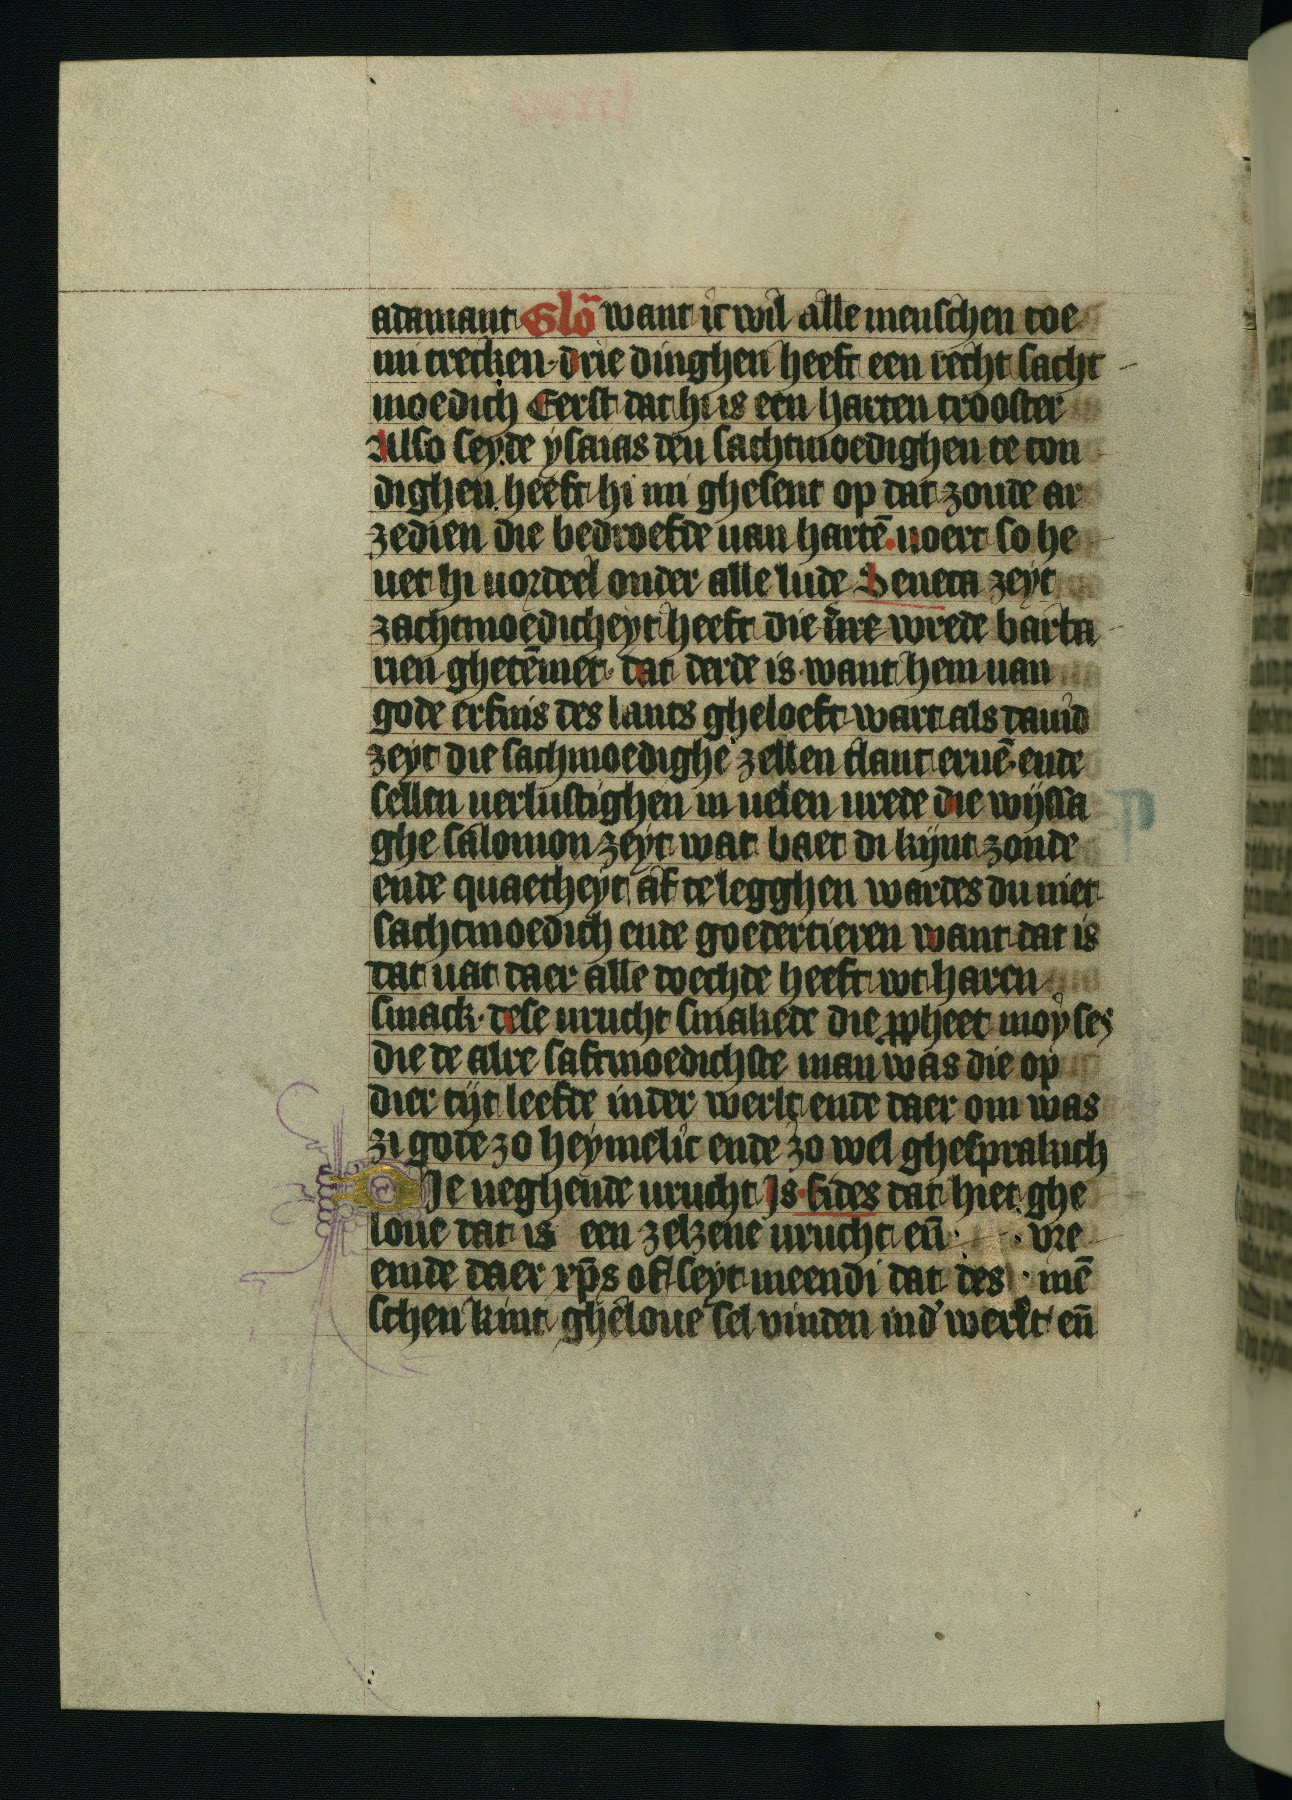 adamant Glo᷃ want ic wil alle menschen toe
mi trecken · drie dinghen heeft een recht sacht
moedich Eerst dat hi is een harten trooster
Also seyde ysaias den sachtmoedighen te con
dighen heeft hi mi ghesent op dat zoude ar
zedien die bedroefde uan hartē · uoert so he
uet hi uordeel onder alle lude Seneca zeyt
zachtmoedicheyt heeft die wrede barba
rien ghetēmet · dat derde is · want hem uan
gode erfnis des lants gheloeft wart als dauid
zeyt die sachmoedighē zellen tlant eruē · ende
sellen uerlustighen in uelen urede die wijssa
ghe salomon zeyt wat baet di kijnt zonde
ende quaetheyt af te legghen wardes du niet
sachtmoedich ende goedertieren want dat is
dat uat daer alle doechde heeft wt haren
smack · dese urucht smakede die ꝓpheet moyses
die de alre saftmoedichste man was die op
dier tijt leefde inder werlt ende daer om was
zi gode zo heymelic ende zo wel ghesprakich
Die neghende urucht Is · fides dat hiet ghe
loue dat is een zelzene urucht eñ · · vre
emde daer xp̄s of seyt meendi dat des · mē
schen kint gheloue sel vinden ind' werlt eñ